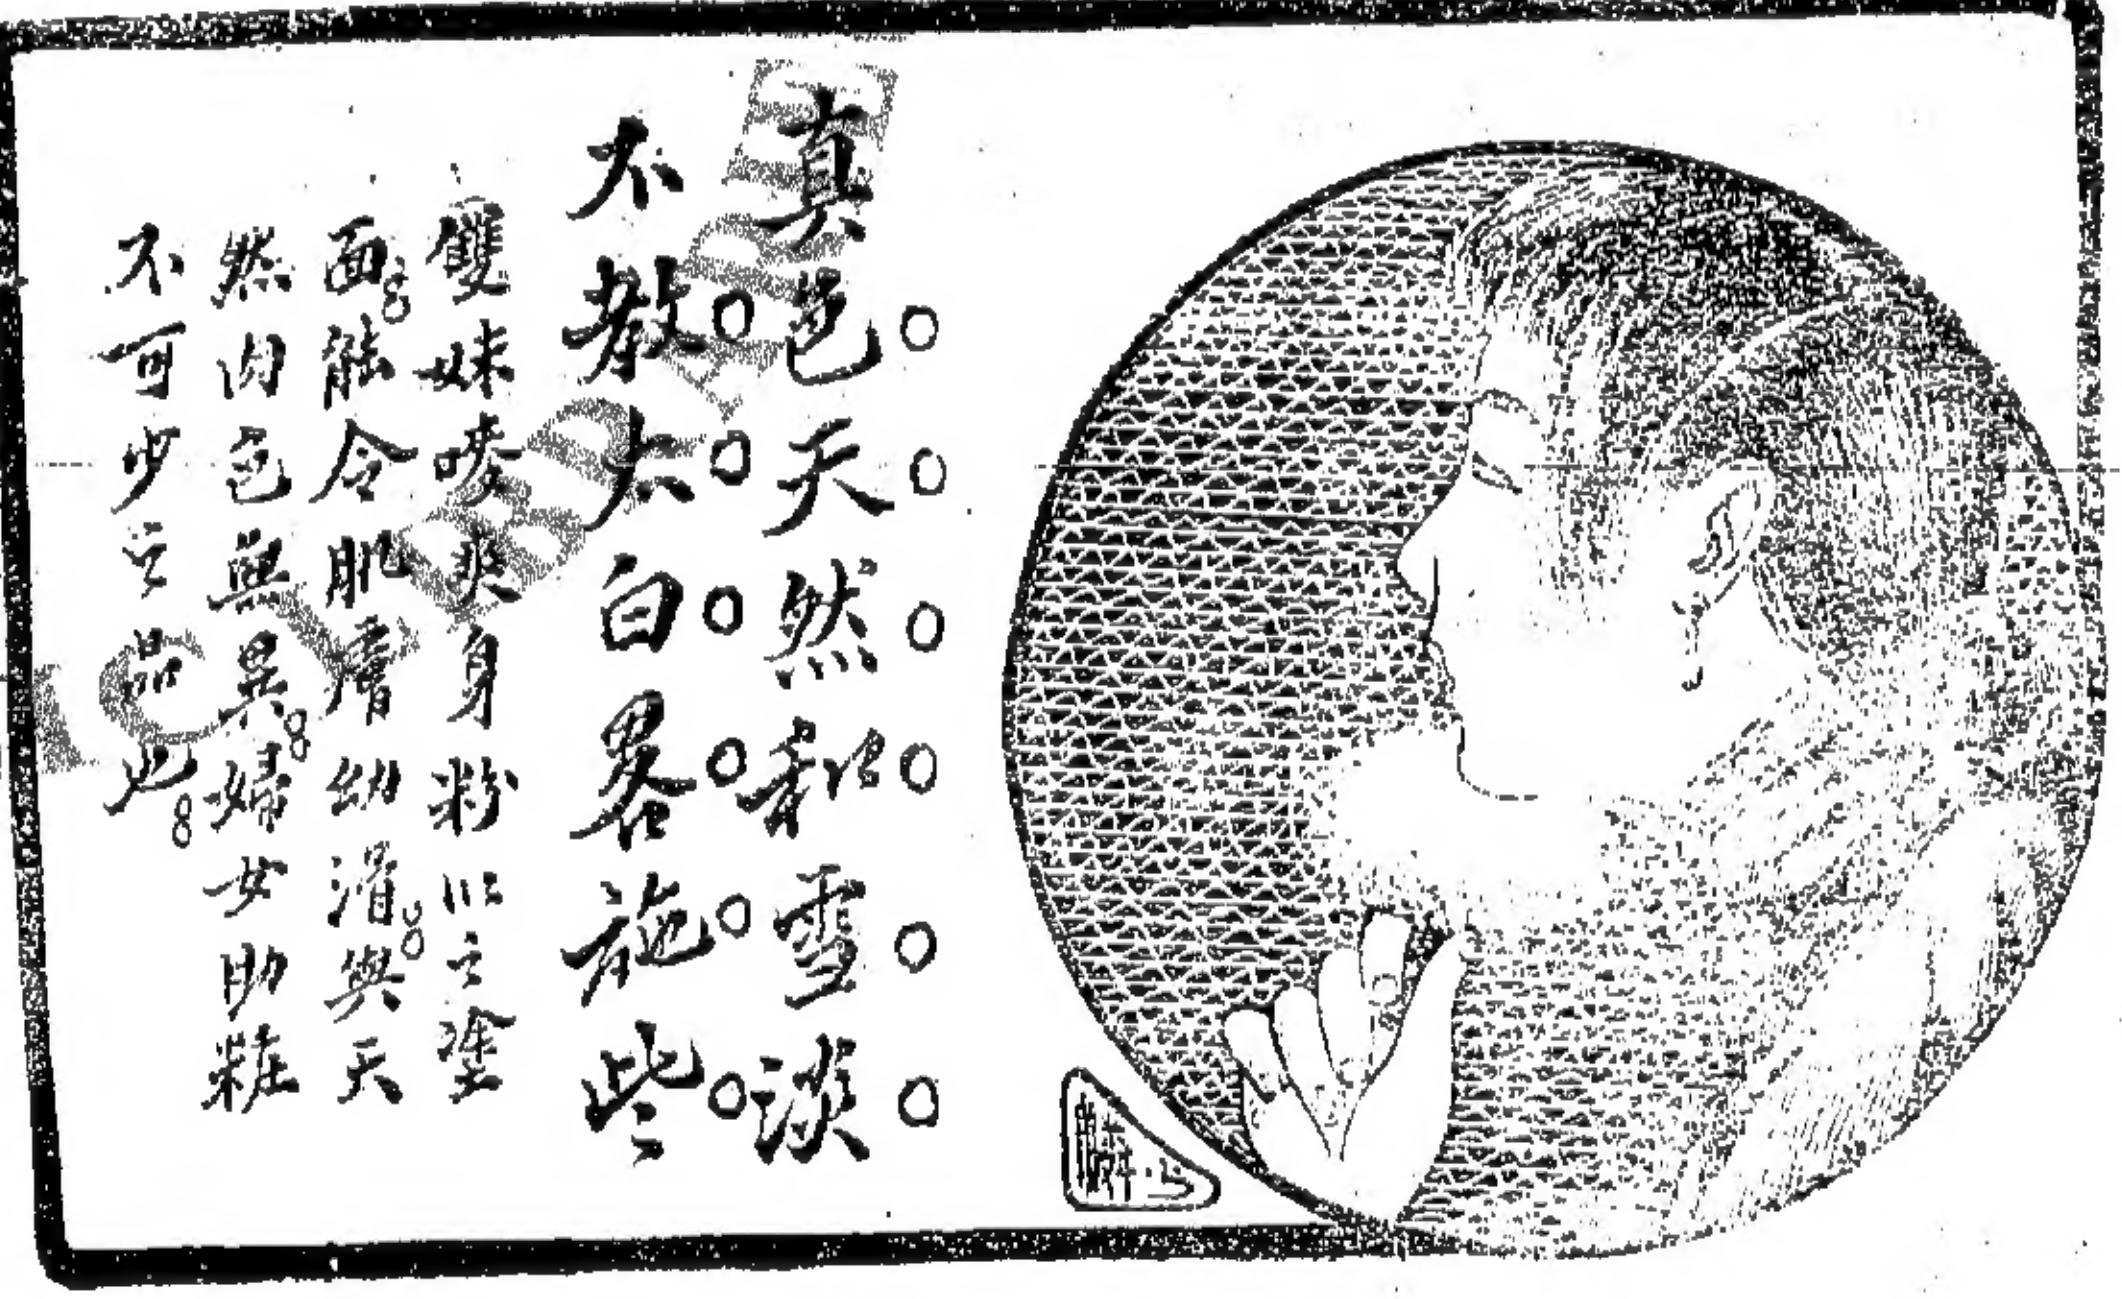 真色天然雪淡
不教太白畧施些
雙妹嘜爽身粉以之塗
面能令肌膚幼滑與天
然肉色無異婦女助粧
不可少之品也